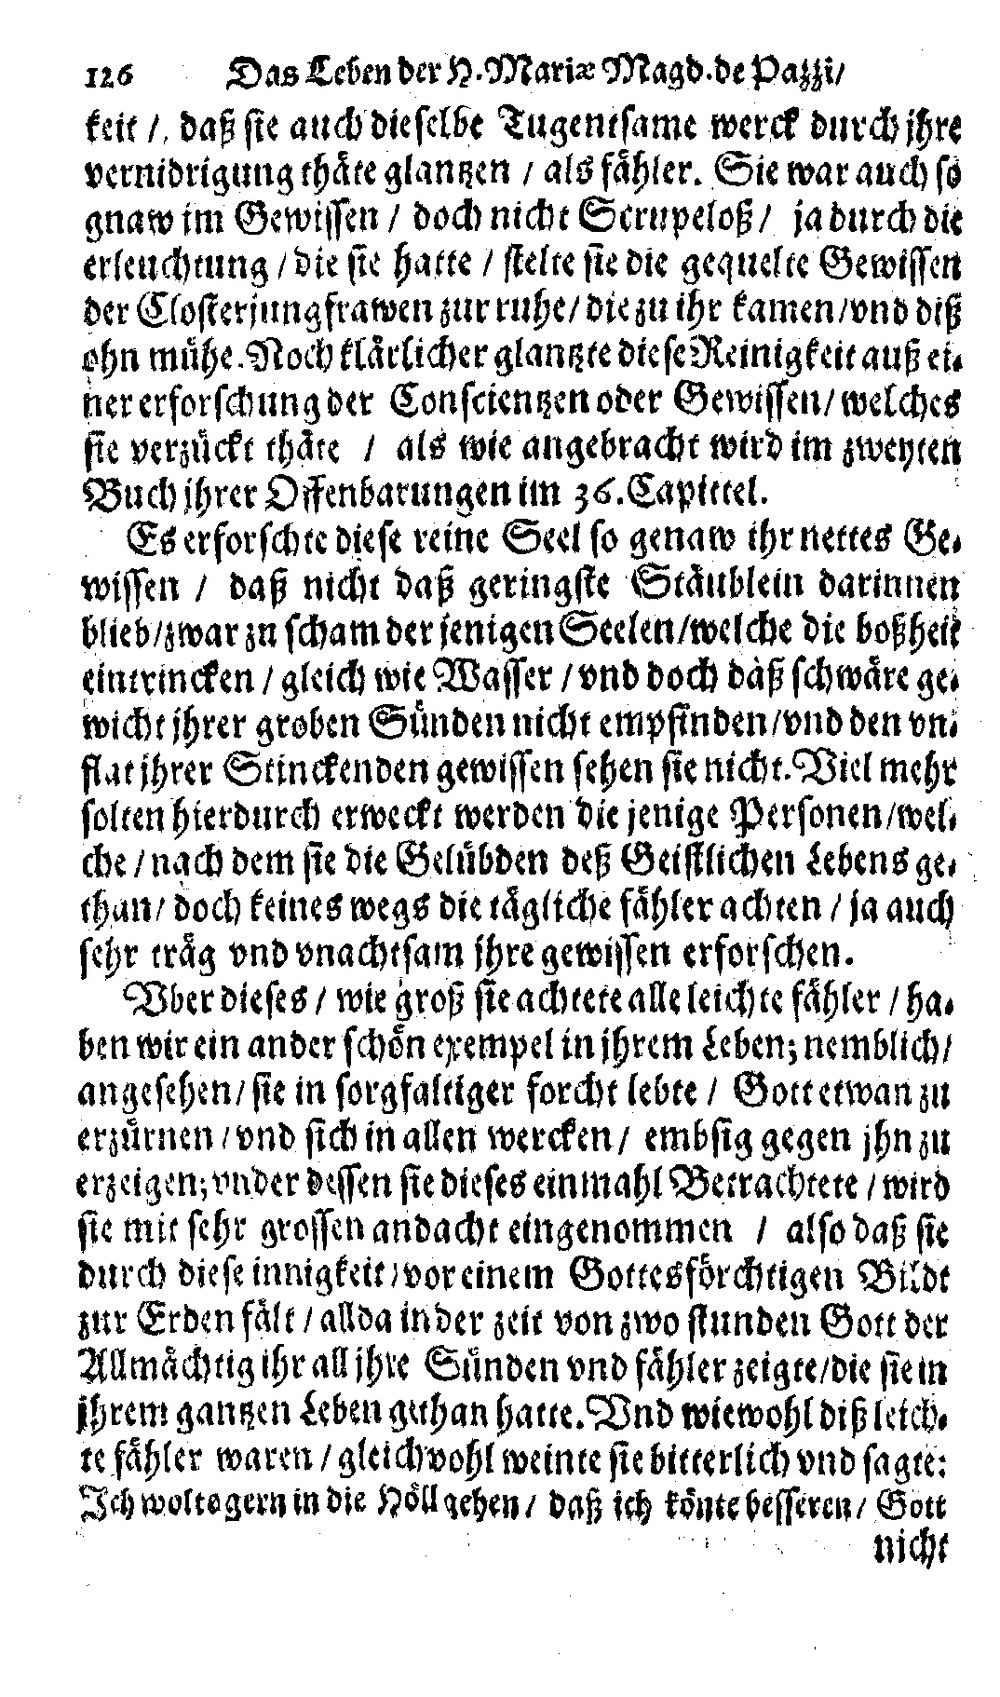 126 Das Leben der H. Mariæ Magd. de Pazzi/
keit /. daß sie auch dieselbe Tugentsame werck durch jhre
vernidrigung thäte glantzen / als fähler. Sie war auch so
gnaw im Gewissen / doch nicht Scrupeloß / ja durch die
erleuchtung / die sie hatte / stelte sie die gequelte Gewissen
der Closterjungfrawen zur ruhe / die zu ihr kamen / vnd diß
ohn mühe. Noch klärlicher glantzte diese Reinigkeit auß ei-
ner erforschung der Conscientzen oder Gewissen / welches
sie verzückt thäte / als wie angebracht wird im zweyten
Buch jhrer Offenbarungen im 36. Capittel.
Es erforschte diese reine Seel so genaw ihr nettes Ge-
wissen / daß nicht daß geringste Stäublein darinnen
blieb / zwar zu scham der jenigen Seelen / welche die boßheit
eintrincken / gleich wie Wasser / vnd doch daß schwäre ge-
wicht jhrer groben Sünden nicht empfinden / vnd den vn-
flat jhrer Stinckenden gewissen sehen sie nicht. Viel mehr
solten hierdurch erweckt werden die jenige Personen / wel-
che / nach dem sie die Gelübden deß Geistlichen Lebens ge-
than / doch keines wegs die tägliche fähler achten / ja auch
sehr träg vnd vnachtsam jhre gewissen erforschen.
Vber dieses / wie groß sie achtete alle leichte fähler / ha-
ben wir ein ander schön exempel in jhrem Leben; nemblich /
angesehen / sie in sorgfaltiger forcht lebte / Gott etwan zu
erzürnen / vnd sich in allen wercken / embsig gegen jhn zu
erzeigen; vnder dessen sie dieses einmahl Betrachtete / wird
sie mit sehr grossen andacht eingenommen / also daß sie
durch diese innigkeit / vor einem Gottesförchtigen Bildt
zur Erden fält / allda in der zeit von zwo stunden Gott der
Allmächtig ihr all jhre Sünden vnd fähler zeigte / die sie in
jhrem gantzen Leben gethan hatte. Vnd wiewohl diß leich-
te fähler waren / gleichvohl weinte sie bitterlich vnd sagte:
Ich wolte gern in die Höll gehen / daß ich könte besseren / Gott
nicht